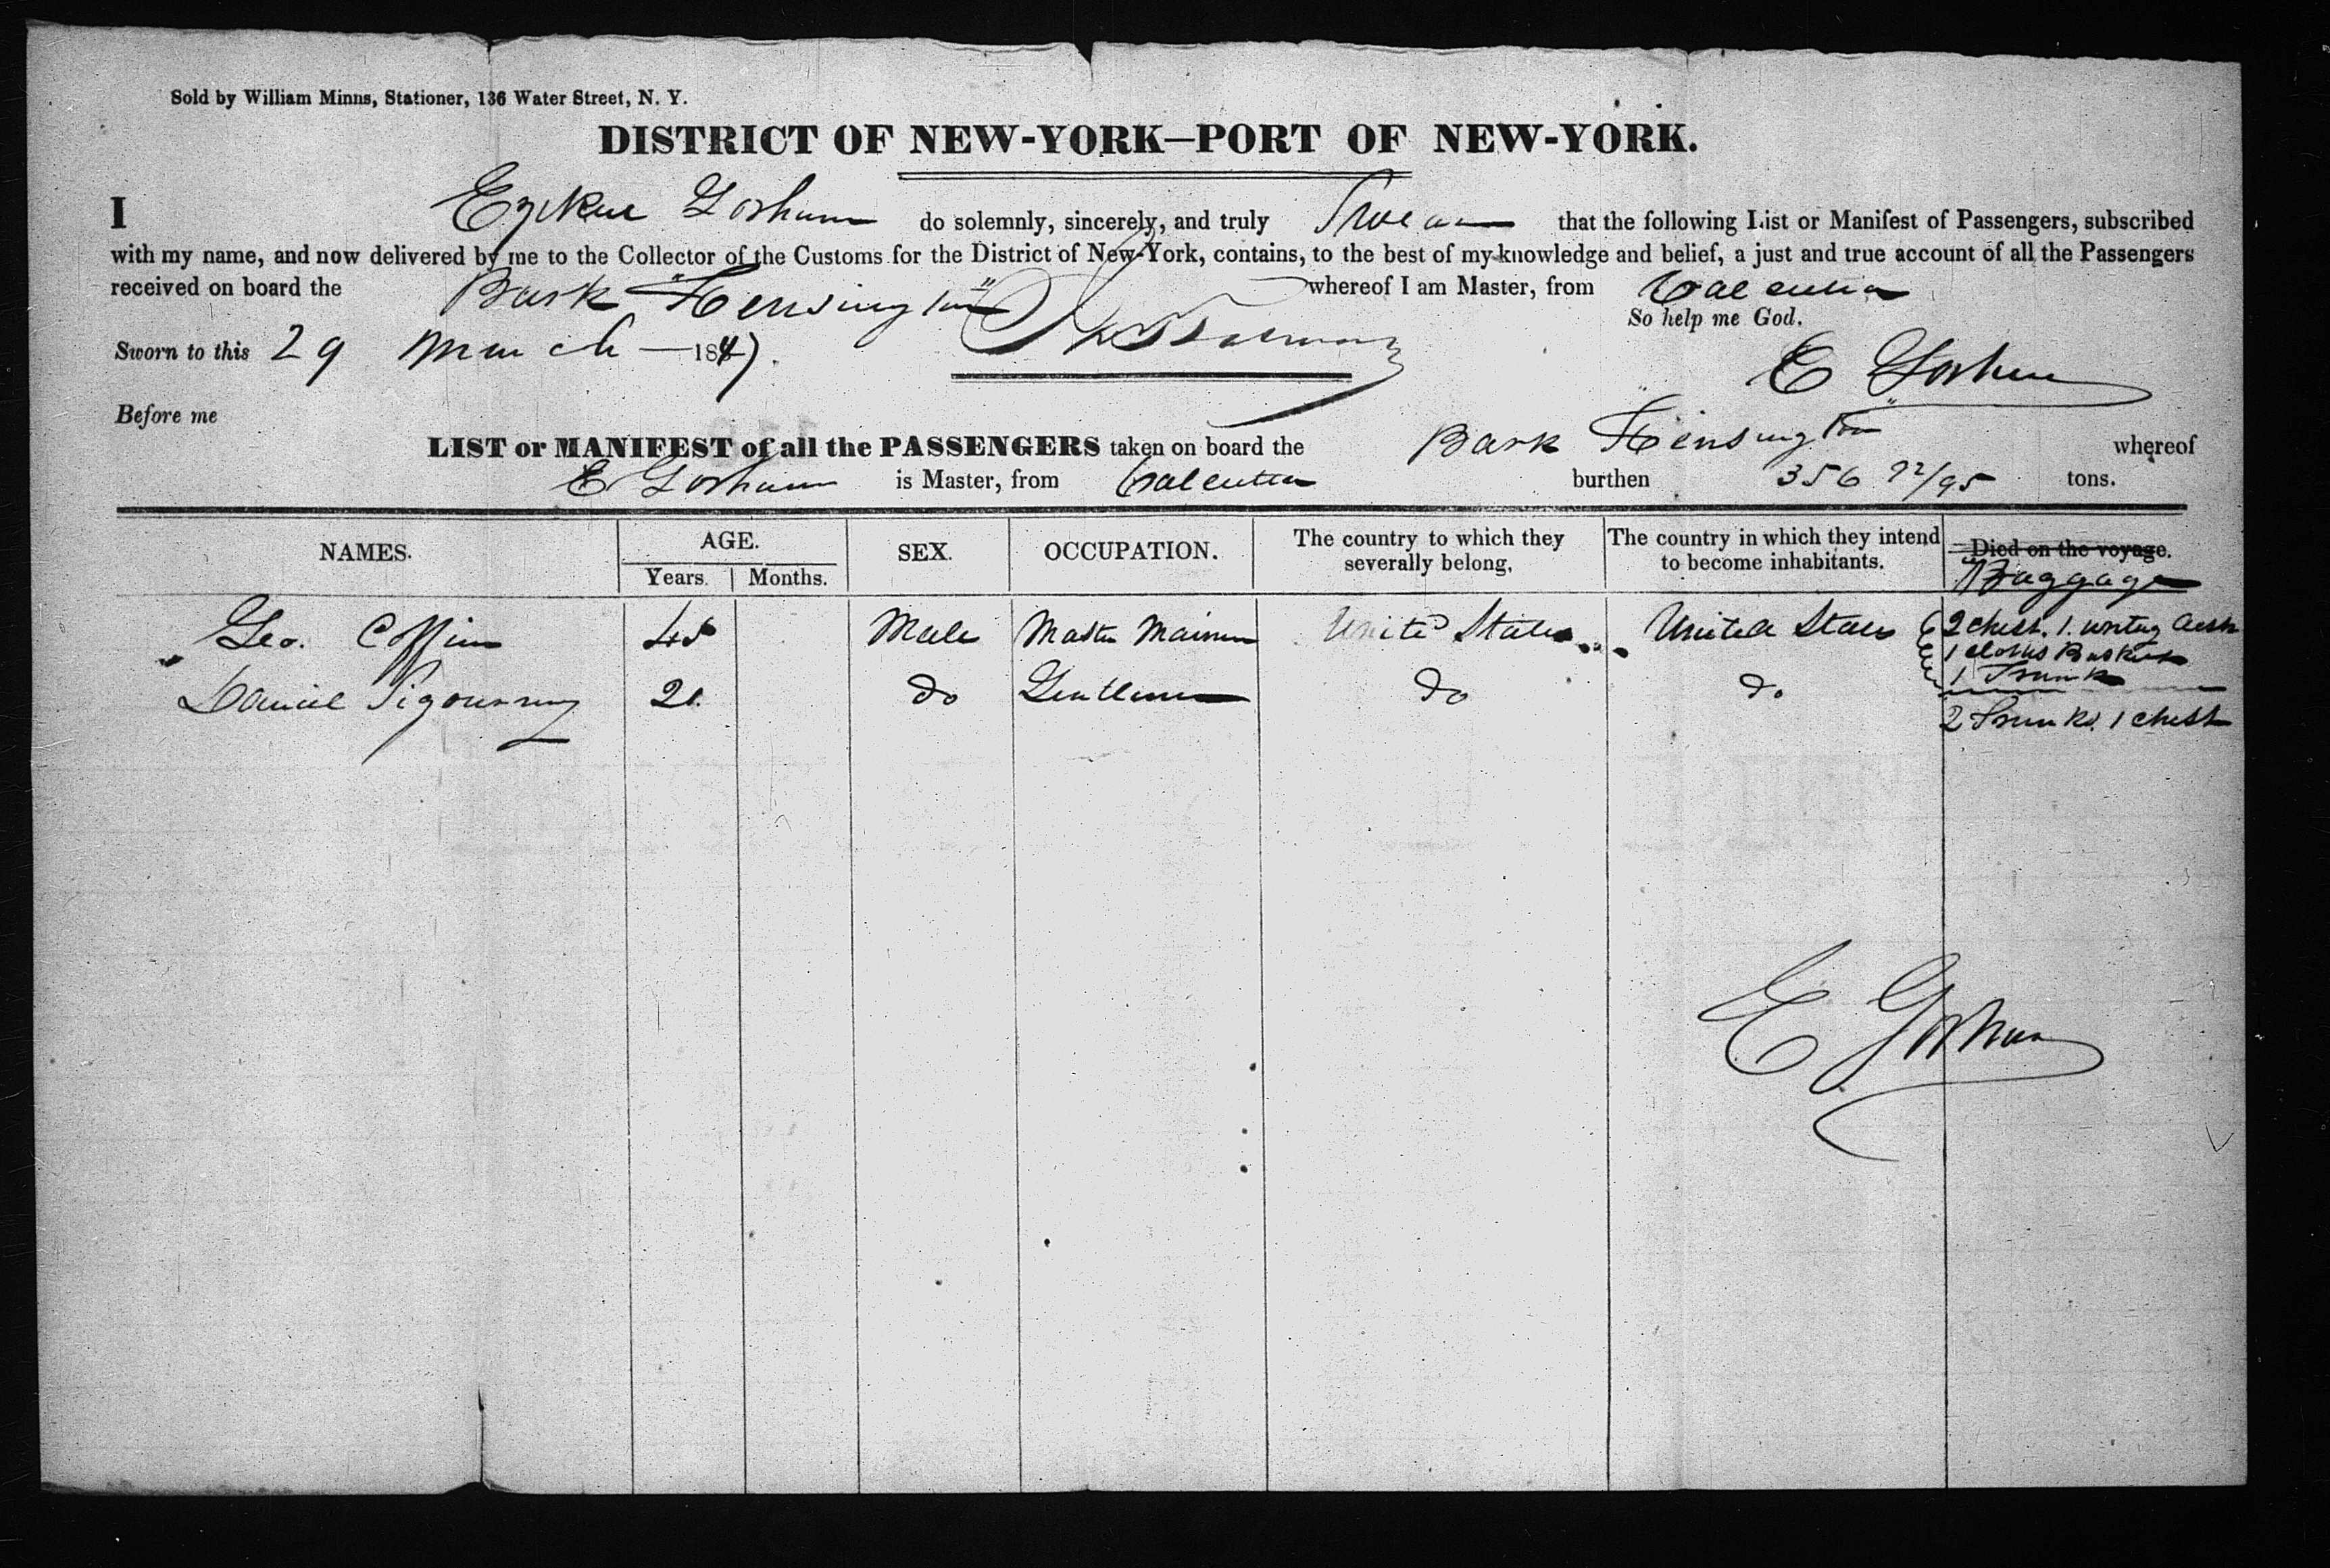 Sold by William Minns, Stationer, 136 Water Street, N. Y.
DISTRICT OF NEW-YORK—PORT OF NEW-YORK.
I Ezekiel Gorham do solemnly, sincerely, and truly Swear that the following List or Manifest of Passengers, subscribed
with my name, and now delivered by me to the Collector of the Customs for the District of New-York, contains, to the best of my knowledge and belief, a just and true account of all the Passengers
received on board the Bark "Kensington" whereof I am Master, from Calcutta
So help me God.
Sworn to this 29 March 1847.
E Gorham
Before me
LIST or MANIFEST of all the PASSENGERS taken on board the Bark Kensington whereof
E Gorham is Master, from Calcutta burthen 356 92/95 tons.
NAMES. AGE. SEX. OCCUPATION. The country to which they severally belong, The country in which they intend to become inhabitants. Died on the voyage.
Years. Months. Baggage
Geo. Coffin 45 Male Master Mariner United States United States 2 Chest. 1. writing desk
1 Cloths Basket
1 Trunk
Daniel Sigourney 21. do Gentleman do do
2 Trunks. 1 chest
E Gorham